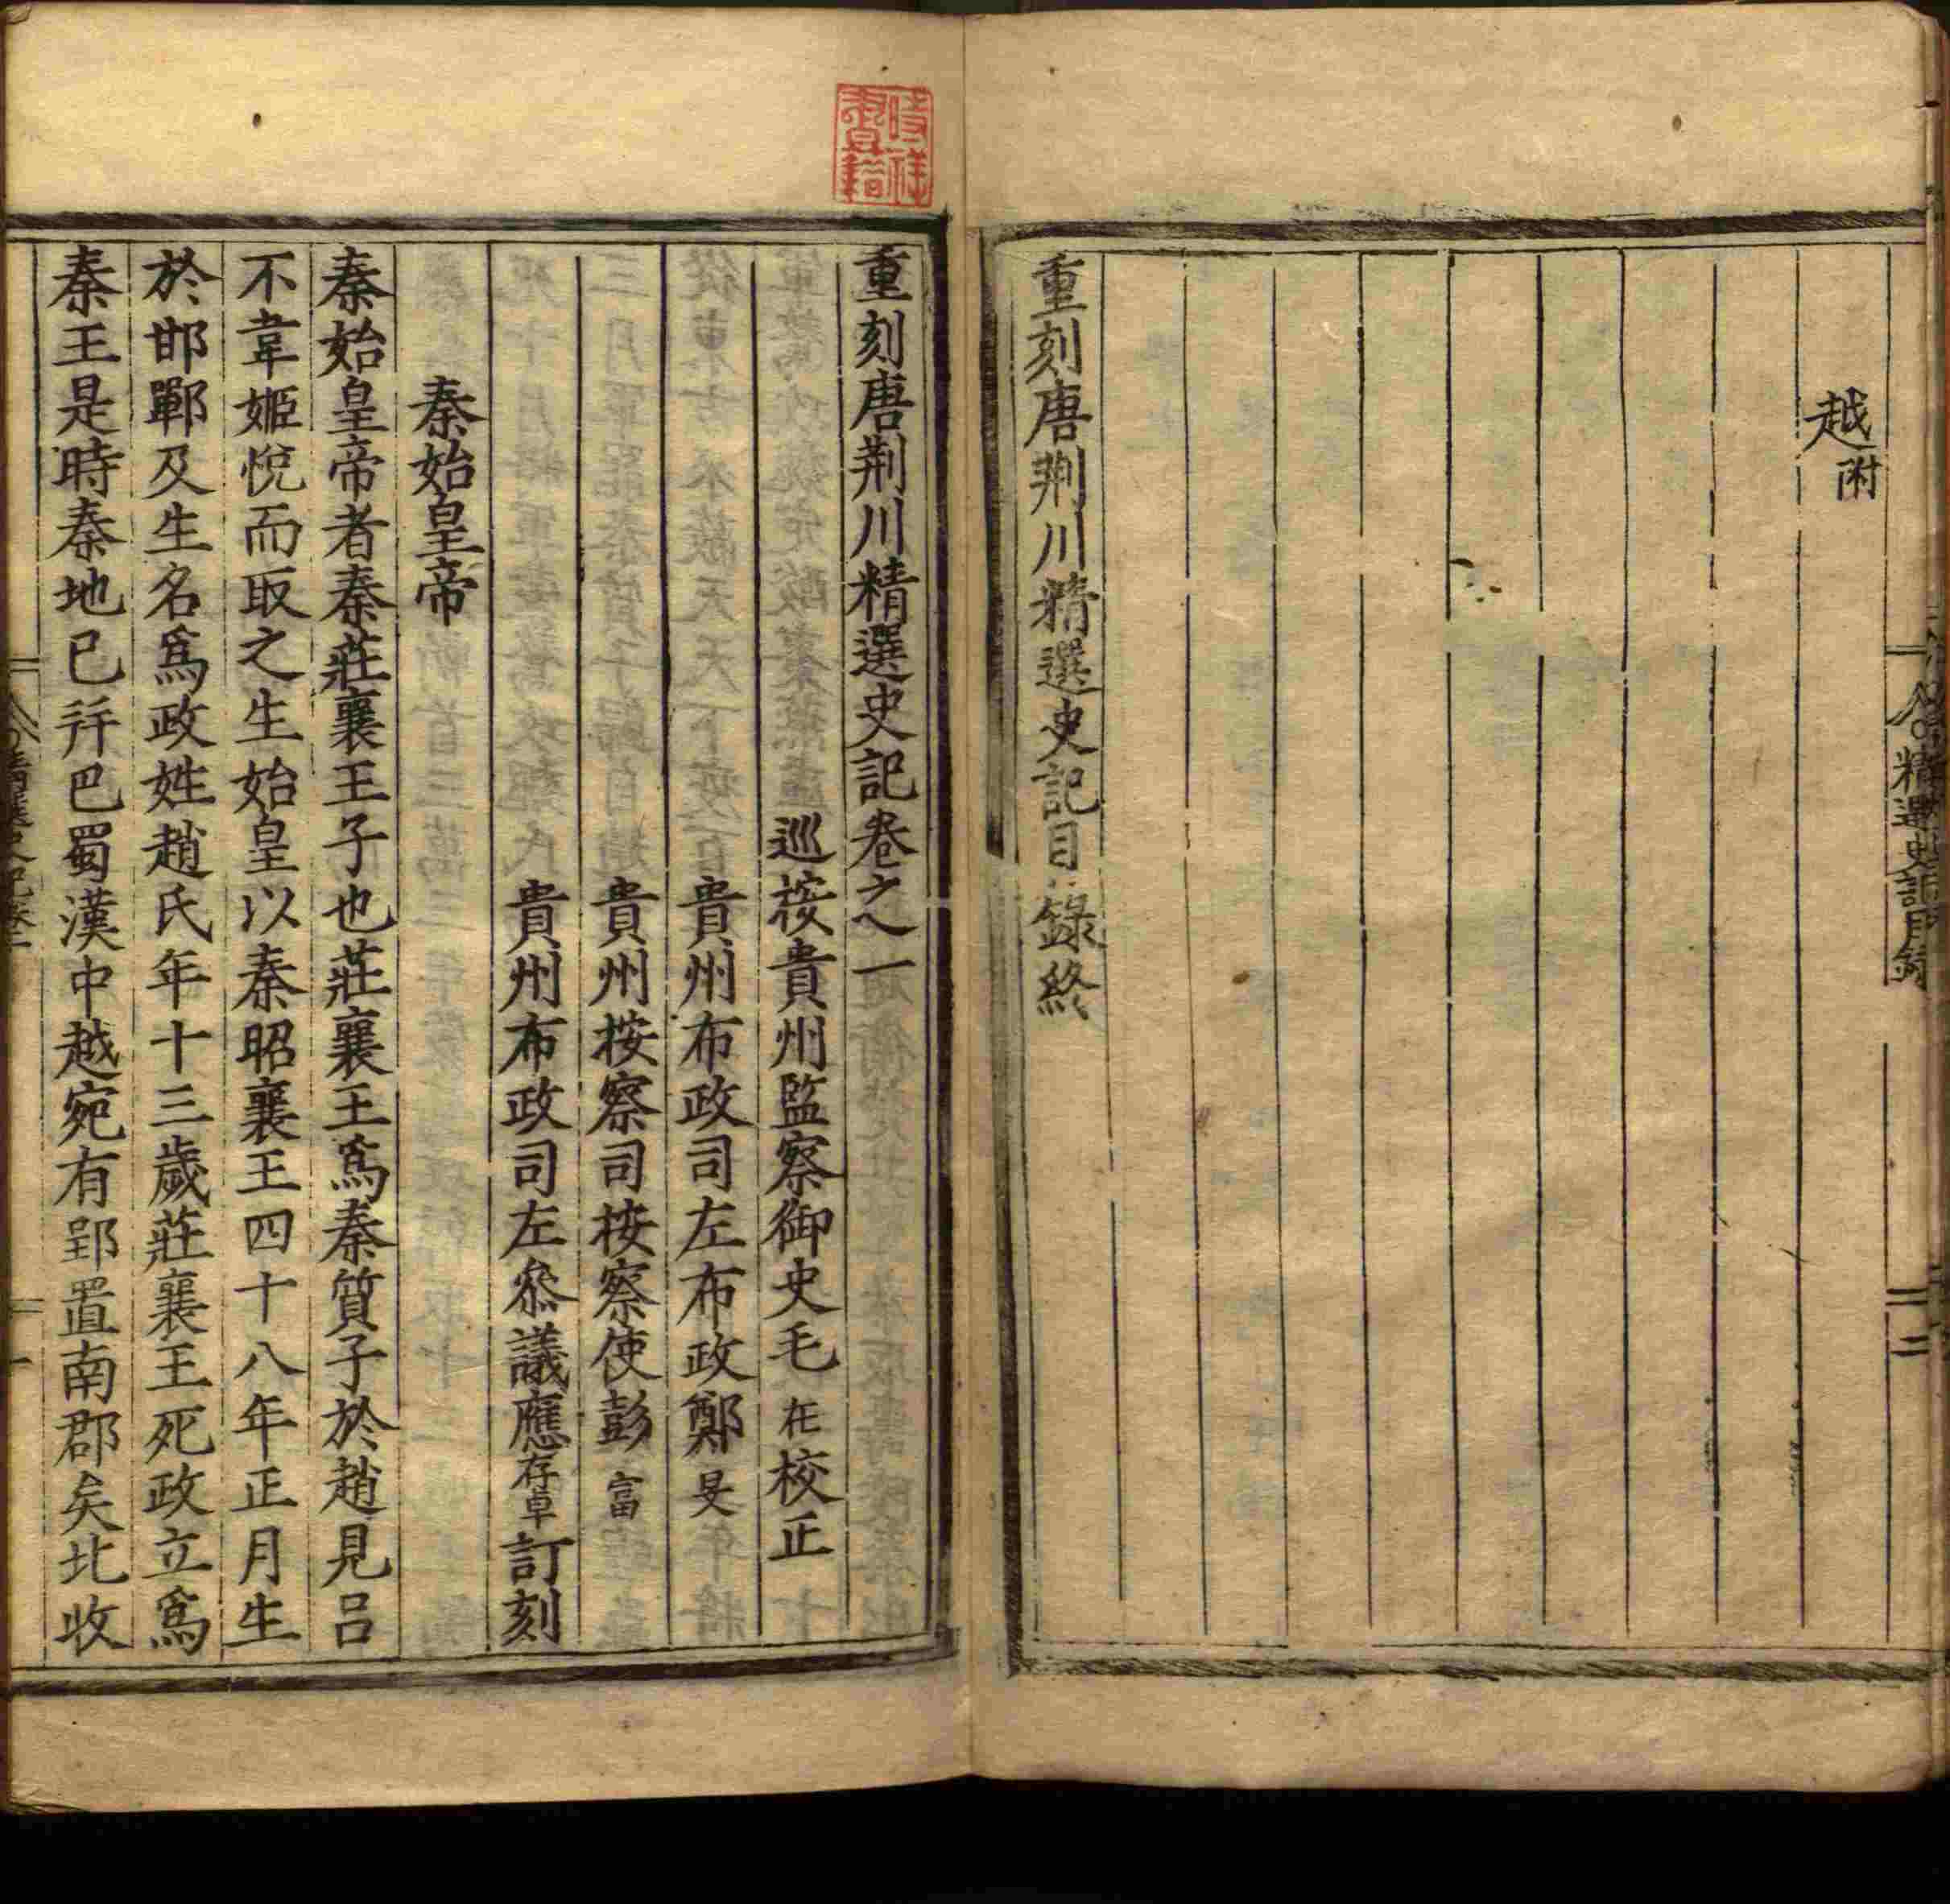 越附
重刻唐荆川精選史記目錄終
精選史記目錄
二
重刻唐荆川精選史記卷之一
巡按貴州監察御史毛在校正
貴州布政司左布政鄭旻
貴州按察司按察使彭富
貴州布政司左叅議應存卓訂刻
秦始皇帝
秦始皇帝者秦莊襄王子也莊襄王爲秦質子於趙見吕
不韋姬悅而取之生始皇以秦昭襄王四十八年正月生
於邯鄲及生名爲政姓趙氏年十三歲莊襄王死政立爲
秦王是時秦地已并巴蜀漢中越宛有郢置南郡矣北收